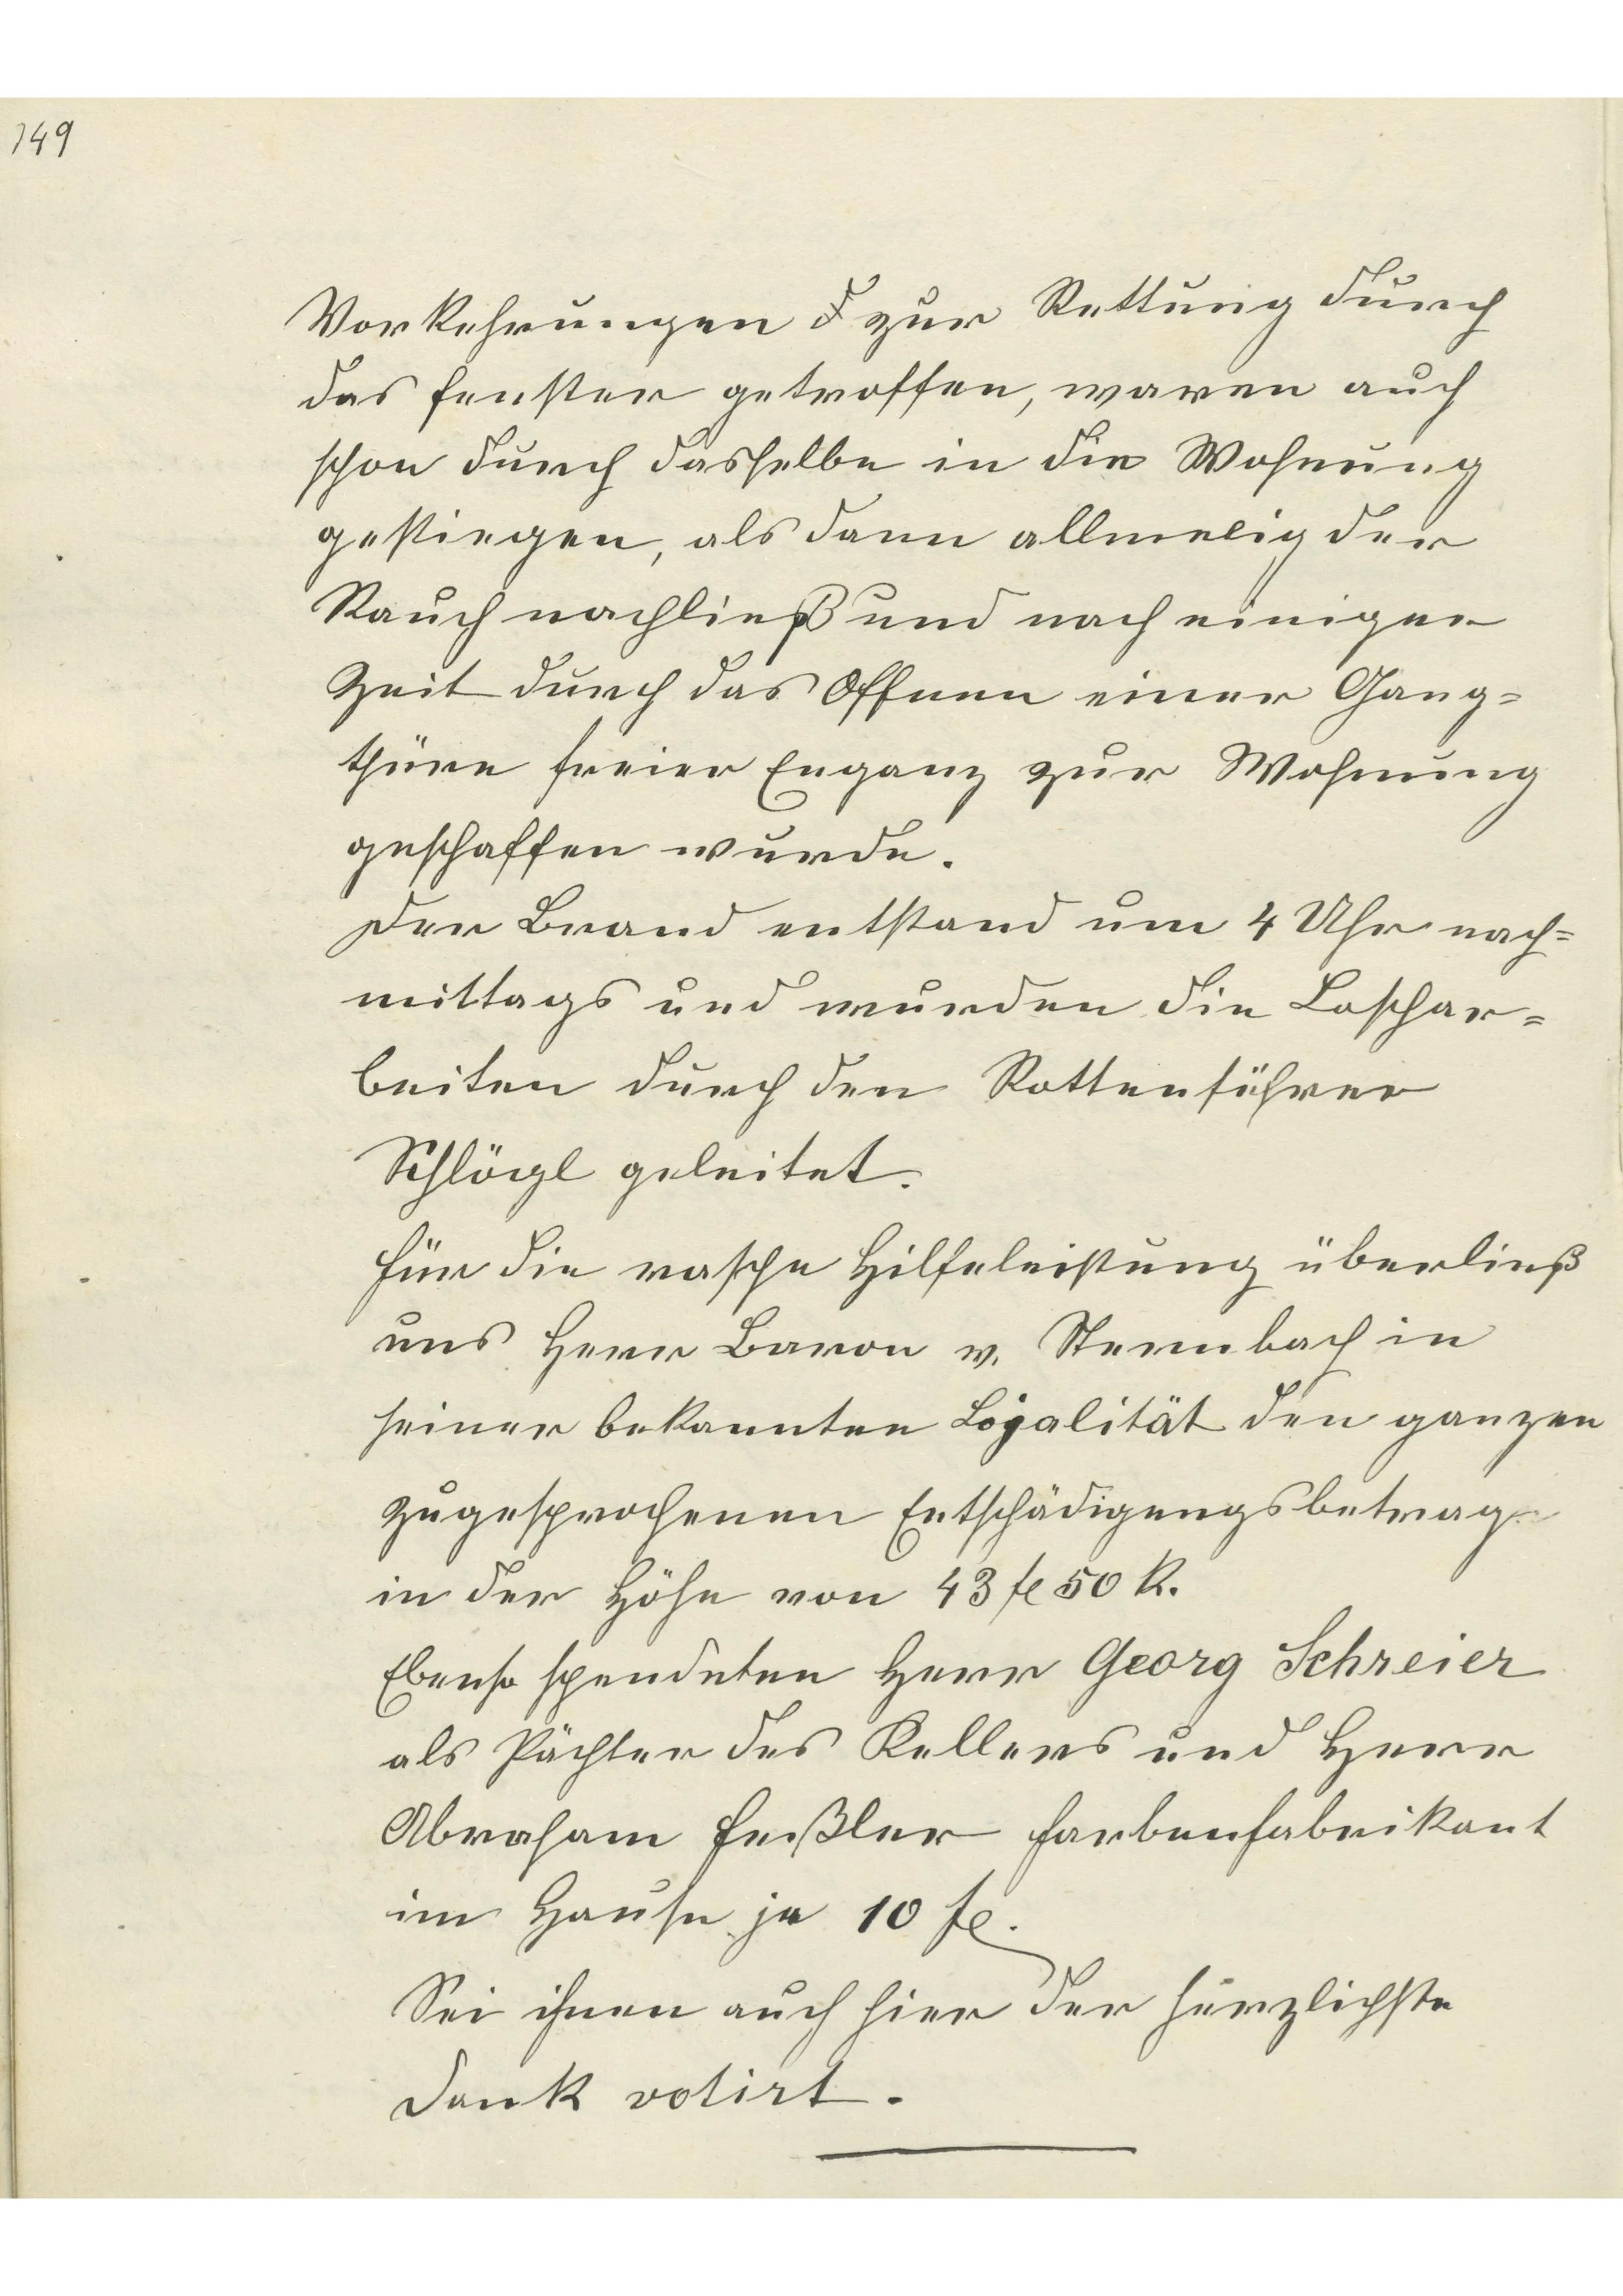 149
Vorkehrungen d zur Rettung durch
das Fenster getroffen, waren auch
schon durch dasselbe in die Wohnung
gestiegen, als dann allmelig der
Rauch nachließ und nach einiger
Zeit durch das Offnen einer Gang=
thüre freier Enganz zur Wohnung
geschaffen wurde.
Der Brand entstand um 4 Uhr nach=
mittags und wurden die Loschar=
beiten durch den Rottenführer
Schlögl geleitet.
Für die rasche Hilfeleistung überließ
uns Herr Baron v. Sternbach in
seiner bekannten Lojalität den ganzen
zugesprochenen Entschädigungsbetrag
in der Höhe von 43 fl 50 k.
Ebenso spendeten Herr Georg Schreier
als Pächter des Kellers und Herr
Abraham Feßler Farbenfabrikant
im Hause je 10 fl.
Sei ihnen auch hier der herzlichste
Dank votirt.